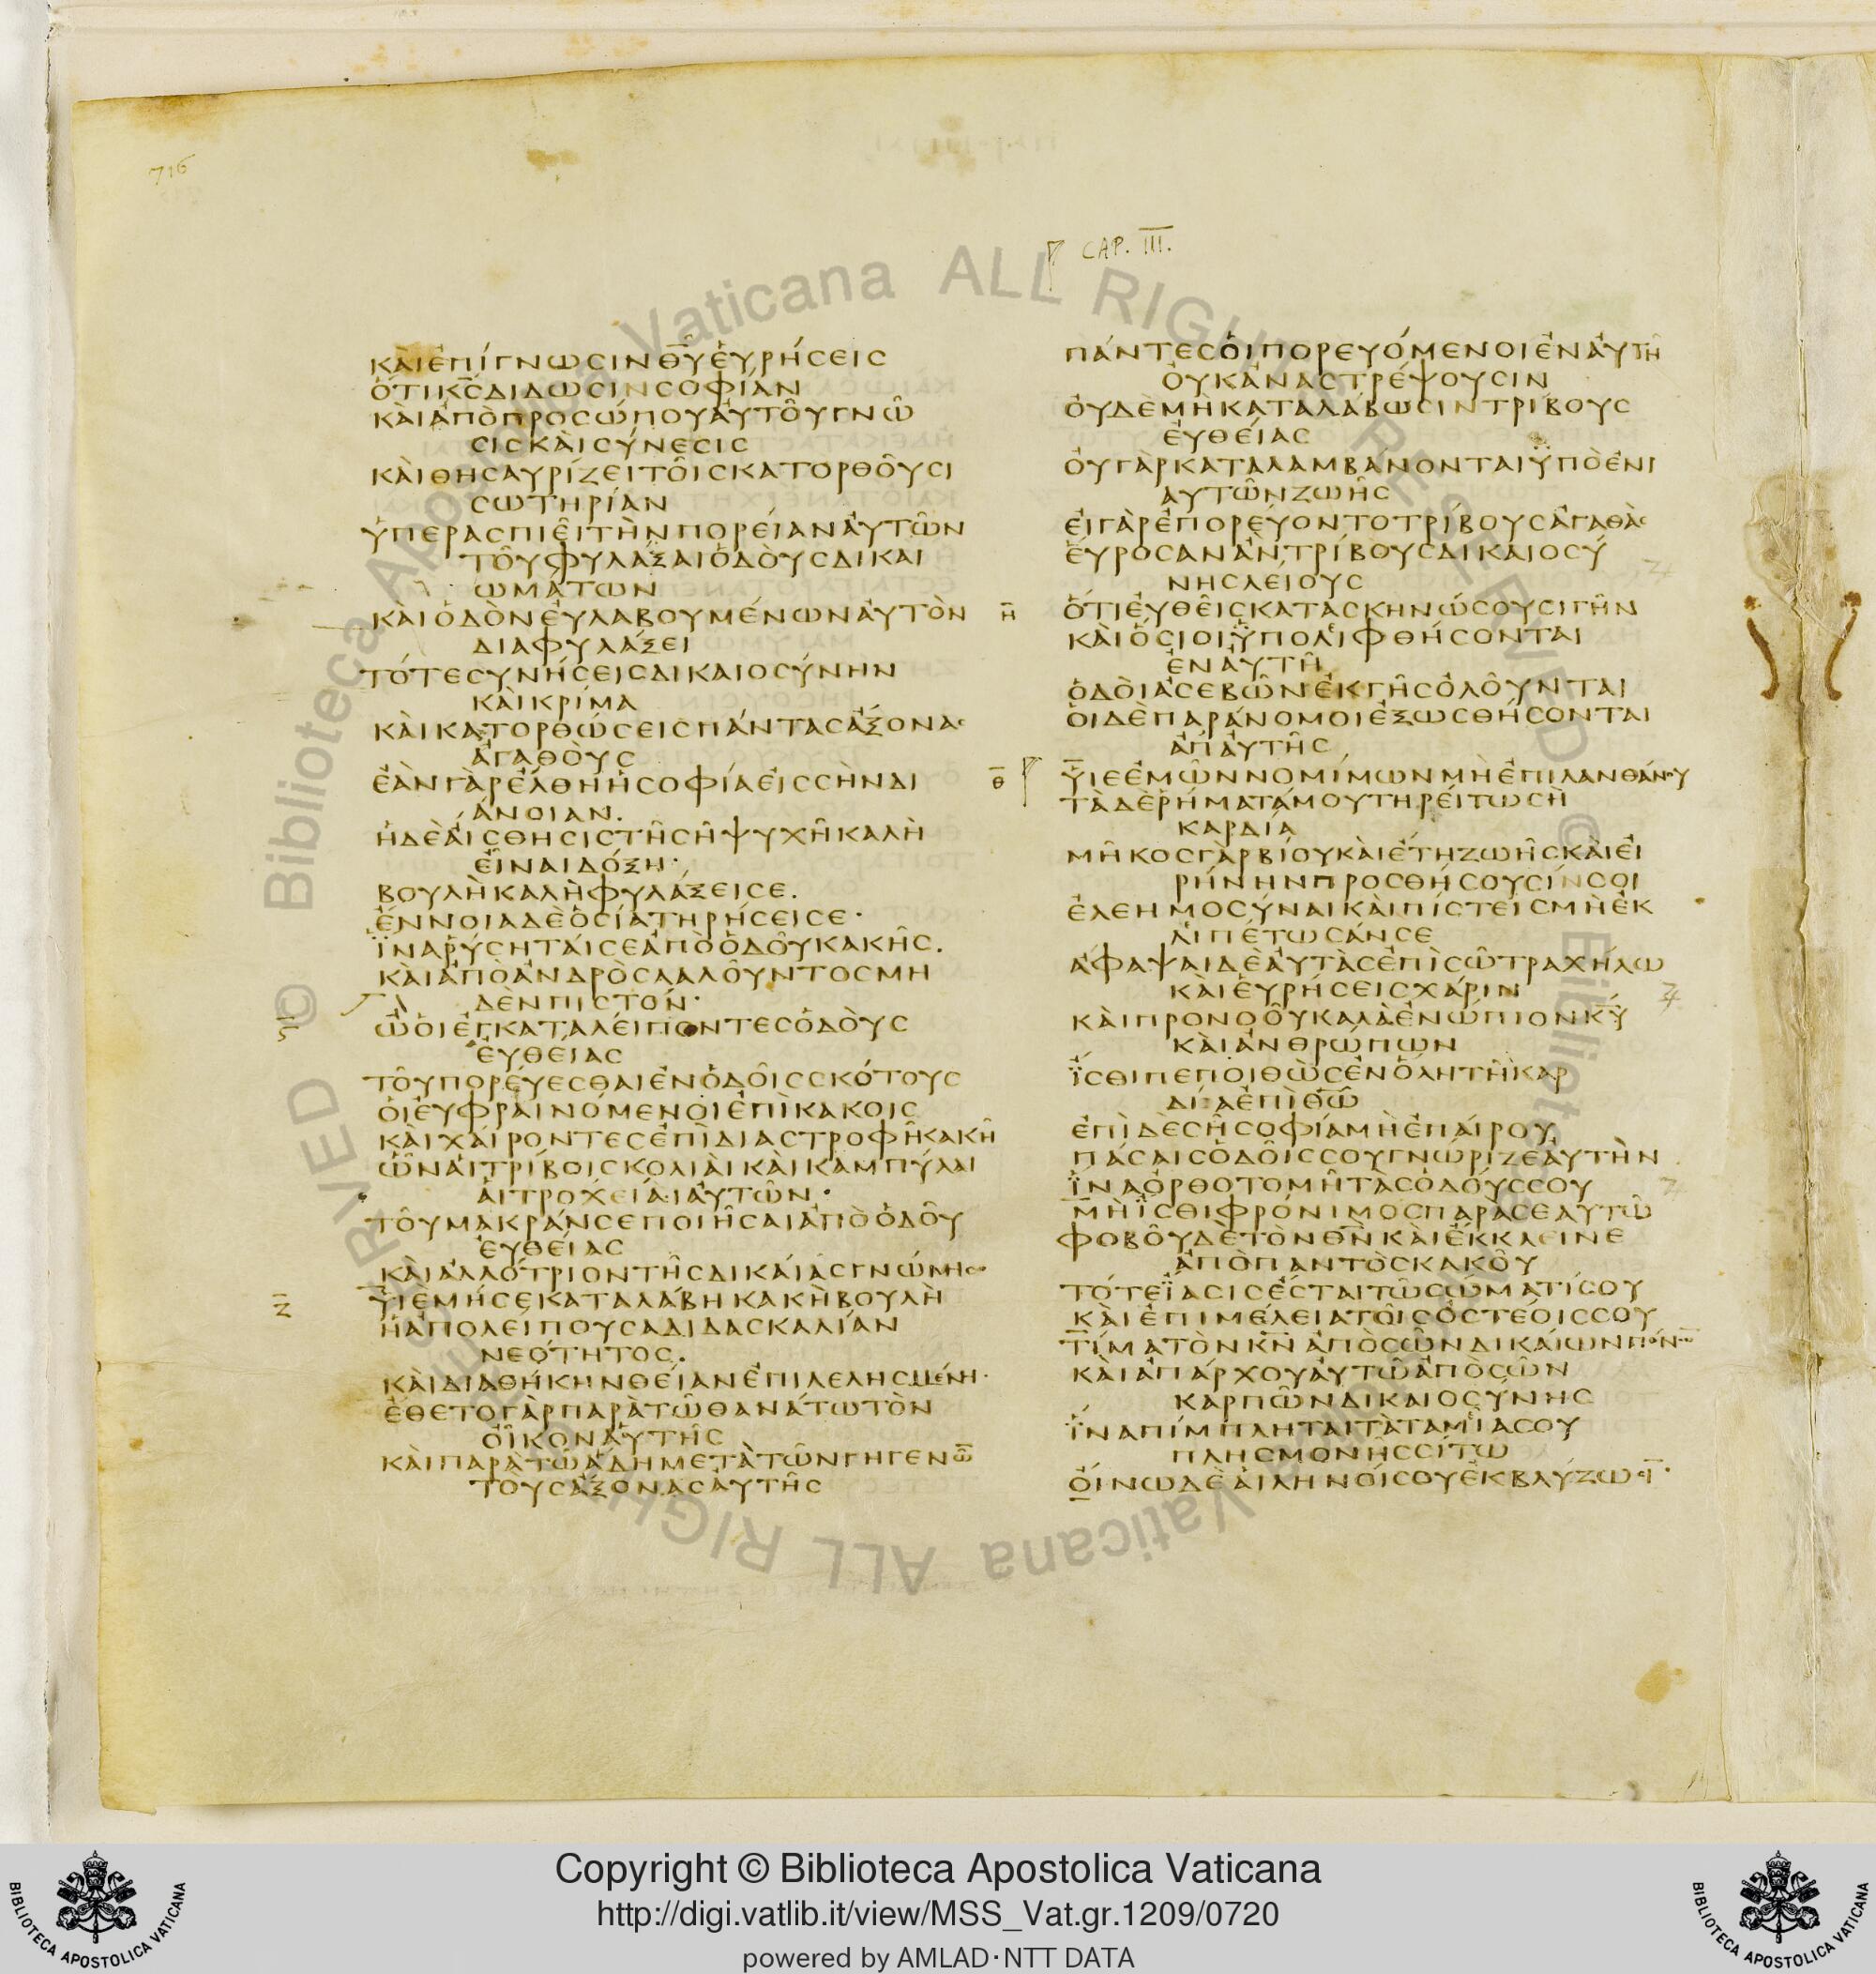 716
CAP. III.
ΚᾺΙἘΠΊΓΝΩϹΙΝΘΥ͂ἙΥΡΉϹΕΙϹ
ὍΤΙΚϹΔΊΔΩϹΙΝϹΟΦΊΑΝ
ΚᾺΙἈΠῸΠΡΟϹΏΠΟΥἈΥΤΟῪΓΝΩ͂
ϹΙϹΚᾺΙϹΎΝΕϹΙϹ
ΚᾺΙΘΗϹΑΥΡΊΖΕΙΤΟΙ͂ϹΚΑΤΟΡΘΟΥ͂ϹΙ
ϹΩΤΗΡΊΑΝ
ὙΠΕΡΑϹΠΙΕΙ͂ΤῊΝΠΟΡΕΊΑΝἈΥΤΩ͂Ν
ΤΟΥ͂ΦΥΛΆΞΑΙὉΔΟῪϹΔΙΚΑΙ
ΩΜΆΤΩΝ
ΚᾺΙὉΔῸΝἘΥΛΑΒΟΥΜΈΝΩΝἈΥΤῸΝ
ΔΙΑΦΥΛΆΞΕΙ
ΤΌΤΕϹΥΝΉϹΕΙϹΔΙΚΑΙΟϹΎΝΗΝ
ΚᾺΙΚΡΊΜΑ
ΚᾺΙΚΑΤΟΡΘΏϹΕΙϹΠΆΝΤΑϹἌΞΟΝΑϹ
ἈΓΑΘΟῪϹ
ἘᾺΝΓᾺΡἜΛΘΗἩϹΟΦΊΑἘΙϹϹῊΝΔΙ
ΆΝΟΙΑΝ.
ἩΔῈἌΙϹΘΗϹΙϹΤΗ͂ϹΗ͂ΨΥΧΗ͂ΚΑΛῊ
ἘΙ͂ΝΑΙΔΌΞΗ·
ΒΟΥΛῊΚΑΛῊΦΥΛΆΞΕΙϹΕ.
ἜΝΝΟΙΑΔῈὉϹΊΑΤΗΡΉϹΕΙϹΕ·
ΪΝΑΡΎϹΗΤΑΊϹΕἈΠῸὉΔΟΥ͂ΚΑΚΗ͂Ϲ.
ΚᾺΙἈΠῸἈΝΔΡῸϹΛΑΛΟΥ͂ΝΤΟϹΜΗ
ΔῈΝΠΙϹΤΌΝ·
Ϛ ὮὉΙἘΓΚΑΤΑΛΕΊΠΟΝΤΕϹὉΔΟῪϹ
ἘΥΘΕΊΑϹ
ΤΟΥ͂ΠΟΡΕΎΕϹΘΑΙἘΝὉΔΟΙ͂ϹϹΚΌΤΟΥϹ
ὉΙΕΥΦΡΑΙΝΌΜΕΝΟΙἘΠῚΚΑΚΟΙϹ
ΚᾺΙΧΑΊΡΟΝΤΕϹἘΠῚΔΙΑϹΤΡΟΦΗ͂ΚΑΚΗ͂
ὯΝἈΙΤΡΊΒΟΙϹΚΟΛΙᾺΙΚᾺΙΚΑΜΠΎΛΑΙ
ἉΙΤΡΟΧΕΙΆΙἈΥΤΩ͂Ν·
ΤΟΥ͂ΜΑΚΡΆΝϹΕΠΟΙΗ͂ϹΑΙἈΠῸὉΔΟΥ͂
ἘΥΘΕΊΑϹ
ΚᾺΙἈΛΛΌΤΡΙΟΝΤΗ͂ϹΔΙΚΑΊΑϹΓΝΏΜΗϹ
Ζ ΥΙἘΜΉϹΕΚΑΤΑΛΆΒΗΚΑΚῊΒΟΥΛῊ
ἩἈΠΟΛΕΊΠΟΥϹΑΔΙΔΑϹΚΑΛΊΑΝ
ΝΕΌΤΗΤΟϹ.
ΚᾺΙΔΙΑΘΉΚΗΝΘΕΊΑΝἘΠΙΛΕΛΗϹΜΈΝΗ·
ἜΘΕΤΟΓᾺΡΠΑΡᾺΤΩ͂ΘΑΝΆΤΩΤῸΝ
ΟἾΚΟΝἈΥΤΗ͂Ϲ
ΚᾺΙΠΑΡᾺΤΩ͂ἍΔΗΜΕΤᾺΤΩ͂ΝΓΗΓΕΝΩ͂
ΤΟΥϹἌΞΟΝΑϹἈΥΤΗ͂Ϲ
ΠΆΝΤΕϹὉΙΠΟΡΕΥΌΜΕΝΟΙἘΝἈΥΤΗ͂
ὈΥΚἈΝΑϹΤΡΈΨΟΥϹΙΝ
ὈΥΔῈΜῊΚΑΤΑΛΆΒΩϹΙΝΤΡΊΒΟΥϹ
ἘΥΘΕΊΑϹ
ὈΥΓᾺΡΚΑΤΑΛΑΜΒΆΝΟΝΤΑΙΫΠῸἘΝΙ
ΑΥΤΩ͂ΝΖΩΗ͂Ϲ
ἘΙΓᾺΡἘΠΟΡΕΎΟΝΤΟΤΡΊΒΟΥϹἈΓΑΘᾺϹ
ἝΥΡΟϹΑΝἊΝΤΡΊΒΟΥϹΔΙΚΑΙΟϹΎ
ΝΗϹΛΕΊΟΥϹ
Η ὍΤΙἘΥΘΕΙ͂ϹΚΑΤΑϹΚΗΝΏϹΟΥϹΙΓΗ͂Ν
ΚᾺΙὍϹΙΟΙΫΠΟΛΙΦΘΉϹΟΝΤΑΙ
ἘΝἈΥΤΗ͂
ὉΔῸΙἈϹΕΒΩ͂ΝἘΚΓΗ͂ϹὈΛΟΥ͂ΝΤΑΙ
ὉΙΔῈΠΑΡΆΝΟΜΟΙἘΞΩϹΘΉϹΟΝΤΑΙ
ἈΠἈΥΤΗ͂Ϲ
Θ ΥΙΕἘΜΩ͂ΝΝΟΜΊΜΩΝΜῊἘΠΙΛΑΝΘΆΝΟΥ
ΤᾺΔῈῬΉΜΑΤΆΜΟΥΤΗΡΕΊΤΩϹῊ
ΚΑΡΔΊΑ
ΜΗ͂ΚΟϹΓᾺΡΒΊΟΥΚᾺΙἜΤΗΖΩΗ͂ϹΚᾺΙἘΙ
ΡΉΝΗΝΠΡΟϹΘΉϹΟΥϹΊΝϹΟΙ
ἘΛΕΗΜΟϹΎΝΑΙΚᾺΙΠΊϹΤΕΙϹΜῊἘΚ
ΛΙΠΈΤΩϹΆΝϹΕ
ἌΦΑΨΑΙΔῈἈΥΤᾺϹἘΠῚϹΩ͂ΤΡΑΧΉΛΩ
ΚᾺΙἘΥΡΉϹΕΙϹΧΆΡΙΝ
ΚᾺΙΠΡΟΝΟΟΥ͂ΚΑΛᾺἘΝΏΠΙΟΝΚΥ
ΚᾺΙἈΝΘΡΏΠΩΝ
ΪϹΘΙΠΕΠΟΙΘῺϹἘΝὍΛΗΤΗ͂ΚΑΡ
ΔΊΑἘΠῚΘΩ͂
ἘΠῚΔῈϹΗ͂ϹΟΦΊΑΜῊἘΠΑΊΡΟΥ
ΠΆϹΑΙϹὉΔΟΙ͂ϹϹΟΥΓΝΏΡΙΖΕἈΥΤῊΝ
ΪΝΑὈΡΘΟΤΟΜΗ͂ΤᾺϹὉΔΟΎϹϹΟΥ
ΜῊΪϹΘΙΦΡΌΝΙΜΟϹΠΑΡᾺϹΕΑΥΤΩ͂
ΦΟΒΟΥ͂ΔῈΤῸΝΘΝΚᾺΙἜΚΚΛΕΙΝΕ
ἈΠῸΠΑΝΤῸϹΚΑΚΟΥ͂
ΤΌΤΕΪΑϹΙϹἜϹΤΑΙΤΩ͂ϹΏΜΑΤΊϹΟΥ
ΚᾺΙἘΠΙΜΈΛΕΙΑΤΟΙ͂ϹὈϹΤΈΟΙϹϹΟΥ
ΤΊΜΑΤῸΝΚΝἈΠῸϹΩ͂ΝΔΙΚΑΊΩΝΠΌΝΩ
ΚᾺΙἈΠΆΡΧΟΥἈΥΤΩ͂ἈΠῸϹΩ͂Ν
ΚΑΡΠΩ͂ΝΔΙΚΑΙΟϹΎΝΗϹ
ΪΝΑΠΊΜΠΛΗΤΑΙΤᾺΤΑΜΙΑϹΟΥ
ΠΛΗϹΜΟΝΗ͂ϹϹΊΤΩ
ὌΙΝΩΔῈἈΙΛΗΝΟΊϹΟΥἘΚΒΛΎΖΩϹΙ
Copyright © Biblioteca Apostolica Vaticana
http://digi.vatlib.it/view/MSS_Vat.gr.1209/0720
powered by AMLAD·NTT DATA
BIBLIOTECA APOSTOLICA VATICANA
BIBLIOTECA APOSTOLICA VATICANA